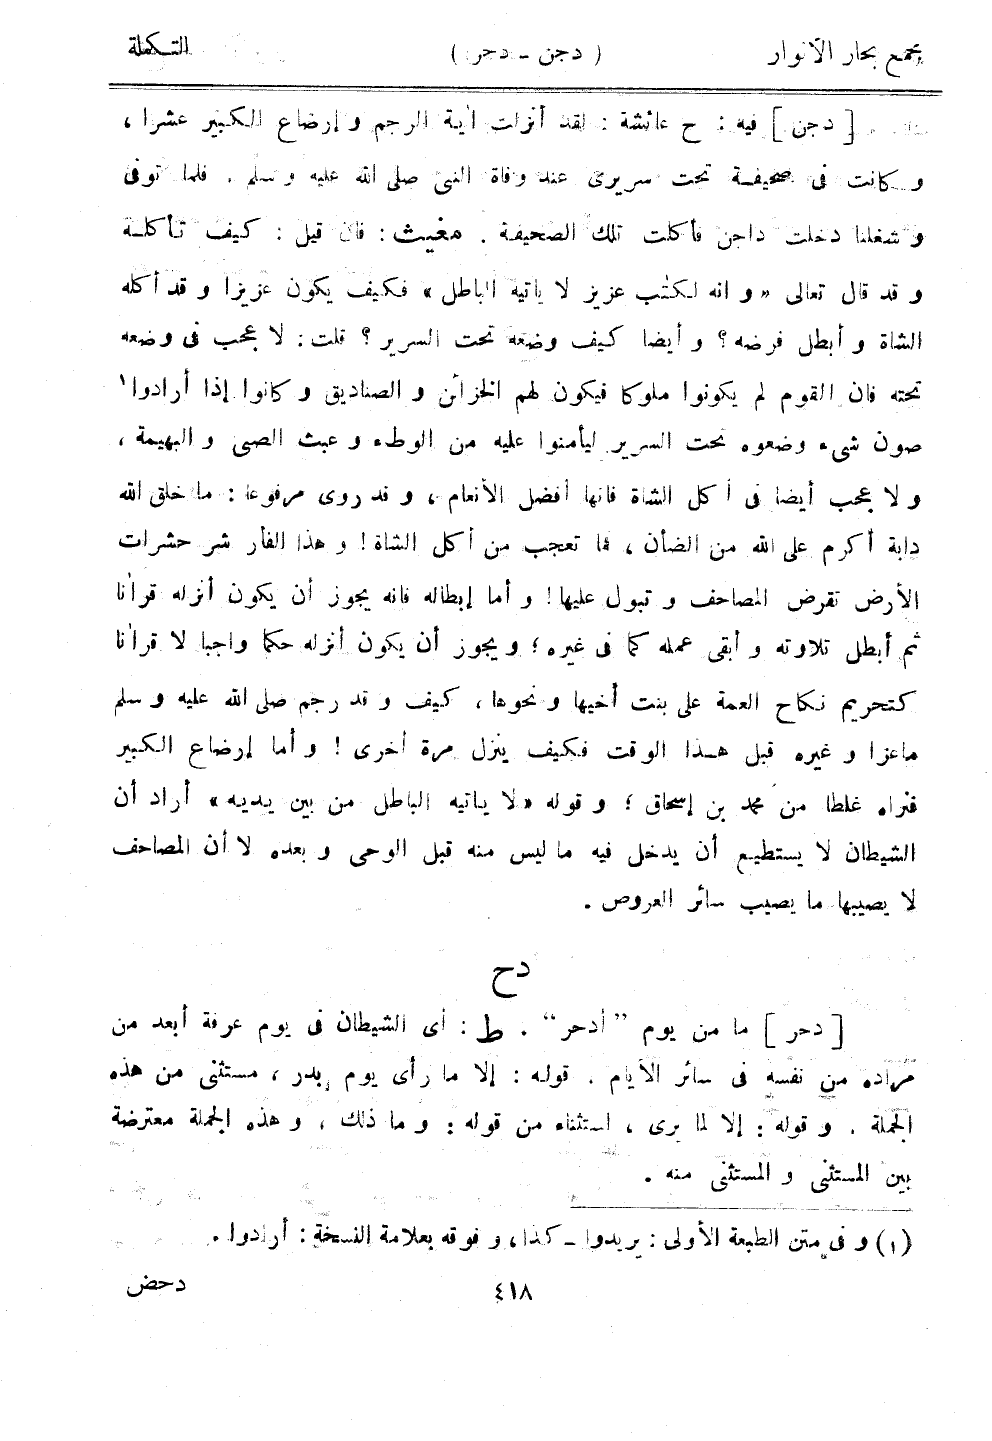 مجمع بحار الآنوار ( دجن - دحر ) التكملة
[ دجن ] فيه : ح عائشة : لقد أنزلت اٰية الرجم و إرضاع الكبير عشرا ،
و كانت فى صحيفة تحت سريرى عند وفاة النبى صلى الله عليه و سلم . فلما توفى
و شغلنا دخلت داجن فأكلت تلك الصحيفة . مغيث : فان قيل : كيف تأكله
و قد قال تعالى « و انه لكتٰب عزيز لا ياتيه الباطل » فكيف يكون عزيزا و قد أكله
الشاة و أبطل فرضه ؟ و أيضا كيف وضعه تحت السرير ؟ قلت : لا عجب فى وضعه
تحته فان القوم لم يكونوا ملوكا فيكون لهم الخزائن و الصناديق و كانوا إذا أرادوا١
صون شىء وضعوه تحت السرير ليأمنوا عليه من الوطء و عبث الصبى و البهيمة ،
و لا عجب أيضا فى أكل الشاة فانها أفضل الأنعام ، و قد روى مرفوعا : ما خلق الله
دابة أكرم على الله من الضأن ، فما تعجب من أكل الشاة ! و هذا الفأر شر حشرات
الأرض تقرض المصاحف و تبول عليها ! و أما إبطاله فانه يجوز أن يكون أنزله قراٰنا
ثم أبطل تلاوته و أبقى عمله كما فى غيره ؛ و يجوز أن يكون أنزله حكما واجبا لا قراٰنا
كتحريم نكاح العمة على بنت أخيها و نحوها ، كيف و قد رجم صلى الله عليه و سلم
ماعزا و غيره قبل هذا الوقت فكيف ينزل مرة أخرى ! و أما إرضاع الكبير
فنراه غلطا من محمد بن إسحاق ؛ و قوله « لا ياتيه الباطل من بين يديه » أراد أن
الشيطان لا يستطيع أن يدخل فيه ما ليس منه قبل الوحى و بعده لا أن المصاحف
لا يصيبها ما يصيب سائر العروض .
دح
[ دحر ] ما من يوم ” أدحر “ . ط : أى الشيطان فى يوم عرفة أبعد من
مراده من نفسه فى سائر الأيام . قوله : إلا ما رأى يوم بدر ، مستثنى من هذه
الجملة . و قوله : إلا لما يرى ، استثناء من قوله : و ما ذلك ، و هذه الجملة معترضة
بين المستثنى و المستثنى منه .
(١) و فى متن الطبعة الأولى : يريدوا - كذا ، و فوقه بعلامة النسخة : أرادوا .
٤١٨ دحض